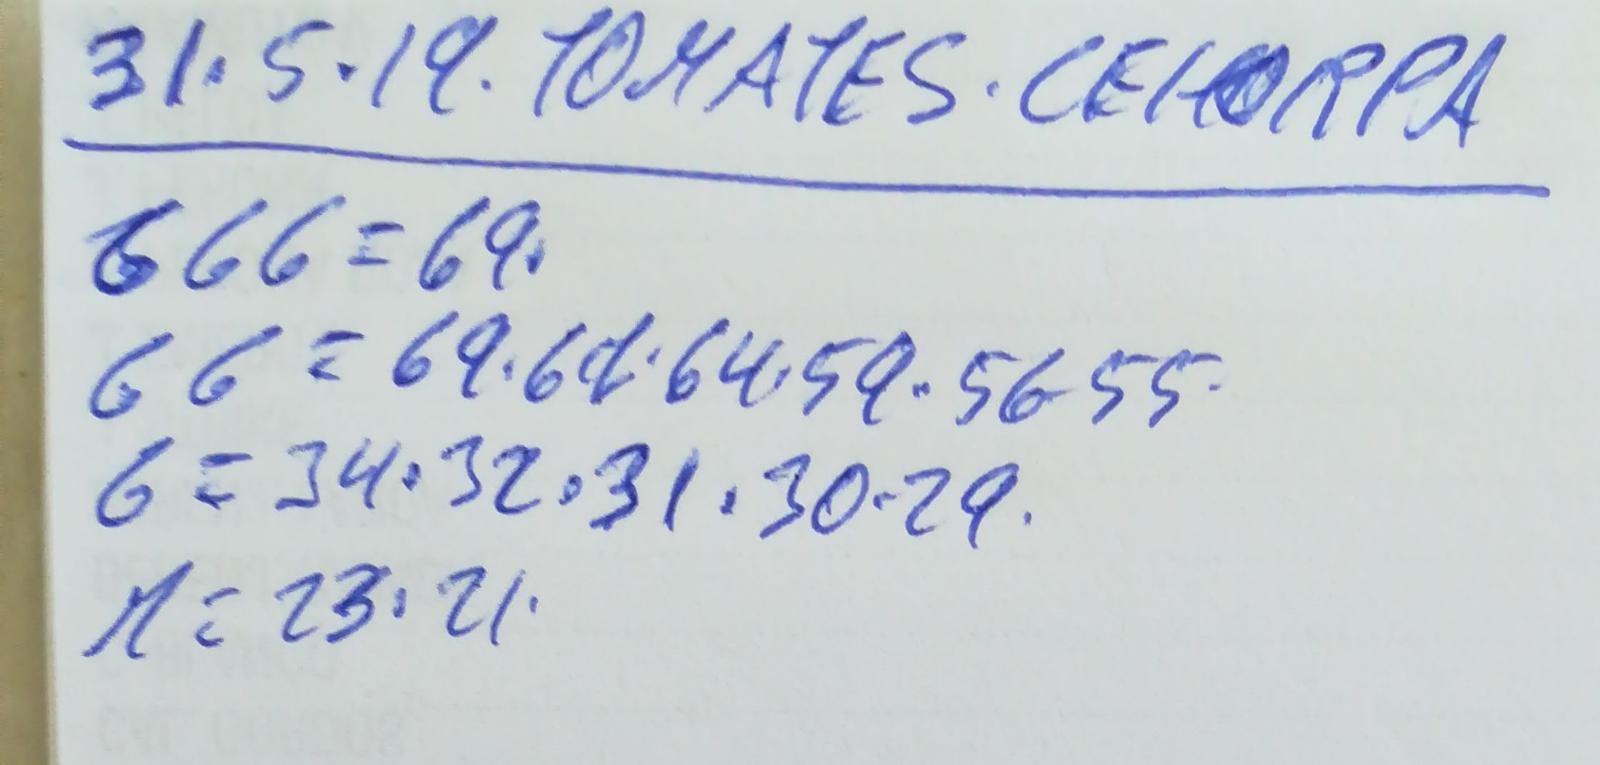 31.5.19. TOMATES. CEHORPA
G G G = 69.
G G = 69.68.64.59.56-55.
G = 34.32.31.30.29.
M = 23.21.